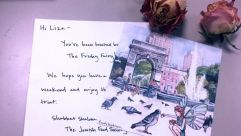 Hi Liza -
You've been boosted by
The Friday Fairy!
We hope you have a
weekend and enjoy the
treat.
Shabbat Shalom
The Jewish Food Society